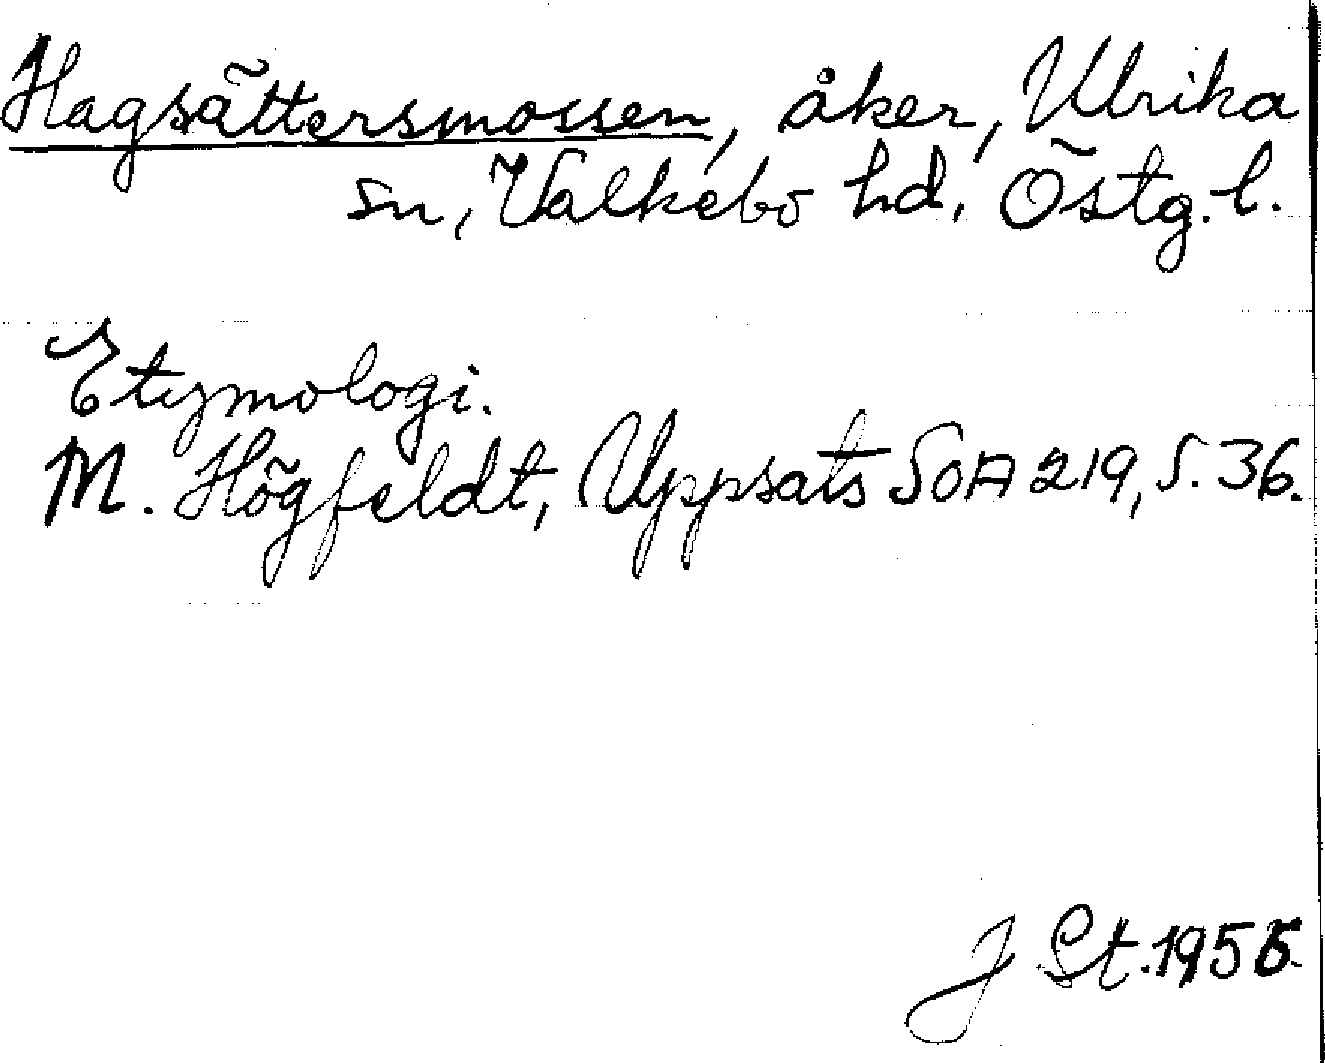 Hagsättersmossen, åker, Ulrika
sn, Valkebo hd, Östg. l.
Etymologi.
M. Högfeldt, Uppsats SOA 219, S. 36.
J St. 1955